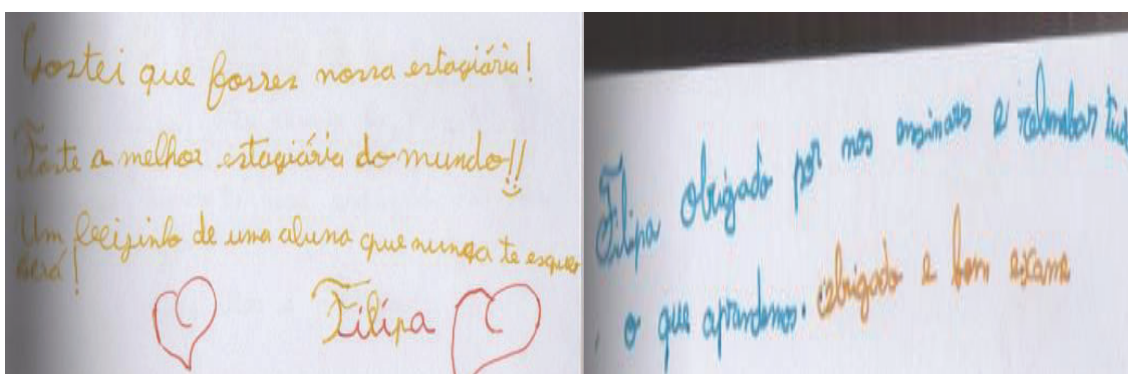 Gostei que fosses nossa estagiária!
Foste a melhor estagiária do mundo!!
Um beijinho de uma aluna que nunca te esque
cerá!
Filipa
Filipa obrigado por nos ensinares e relembar tudo
o que aprendemos. obrigado e bom exame